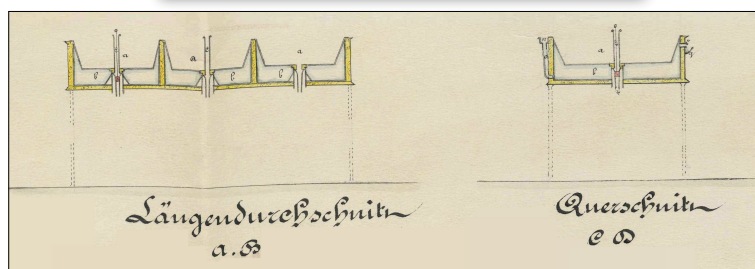 a a a
b b b
a
b
Längendurchschnitt
a. B
Querschnitt
C D